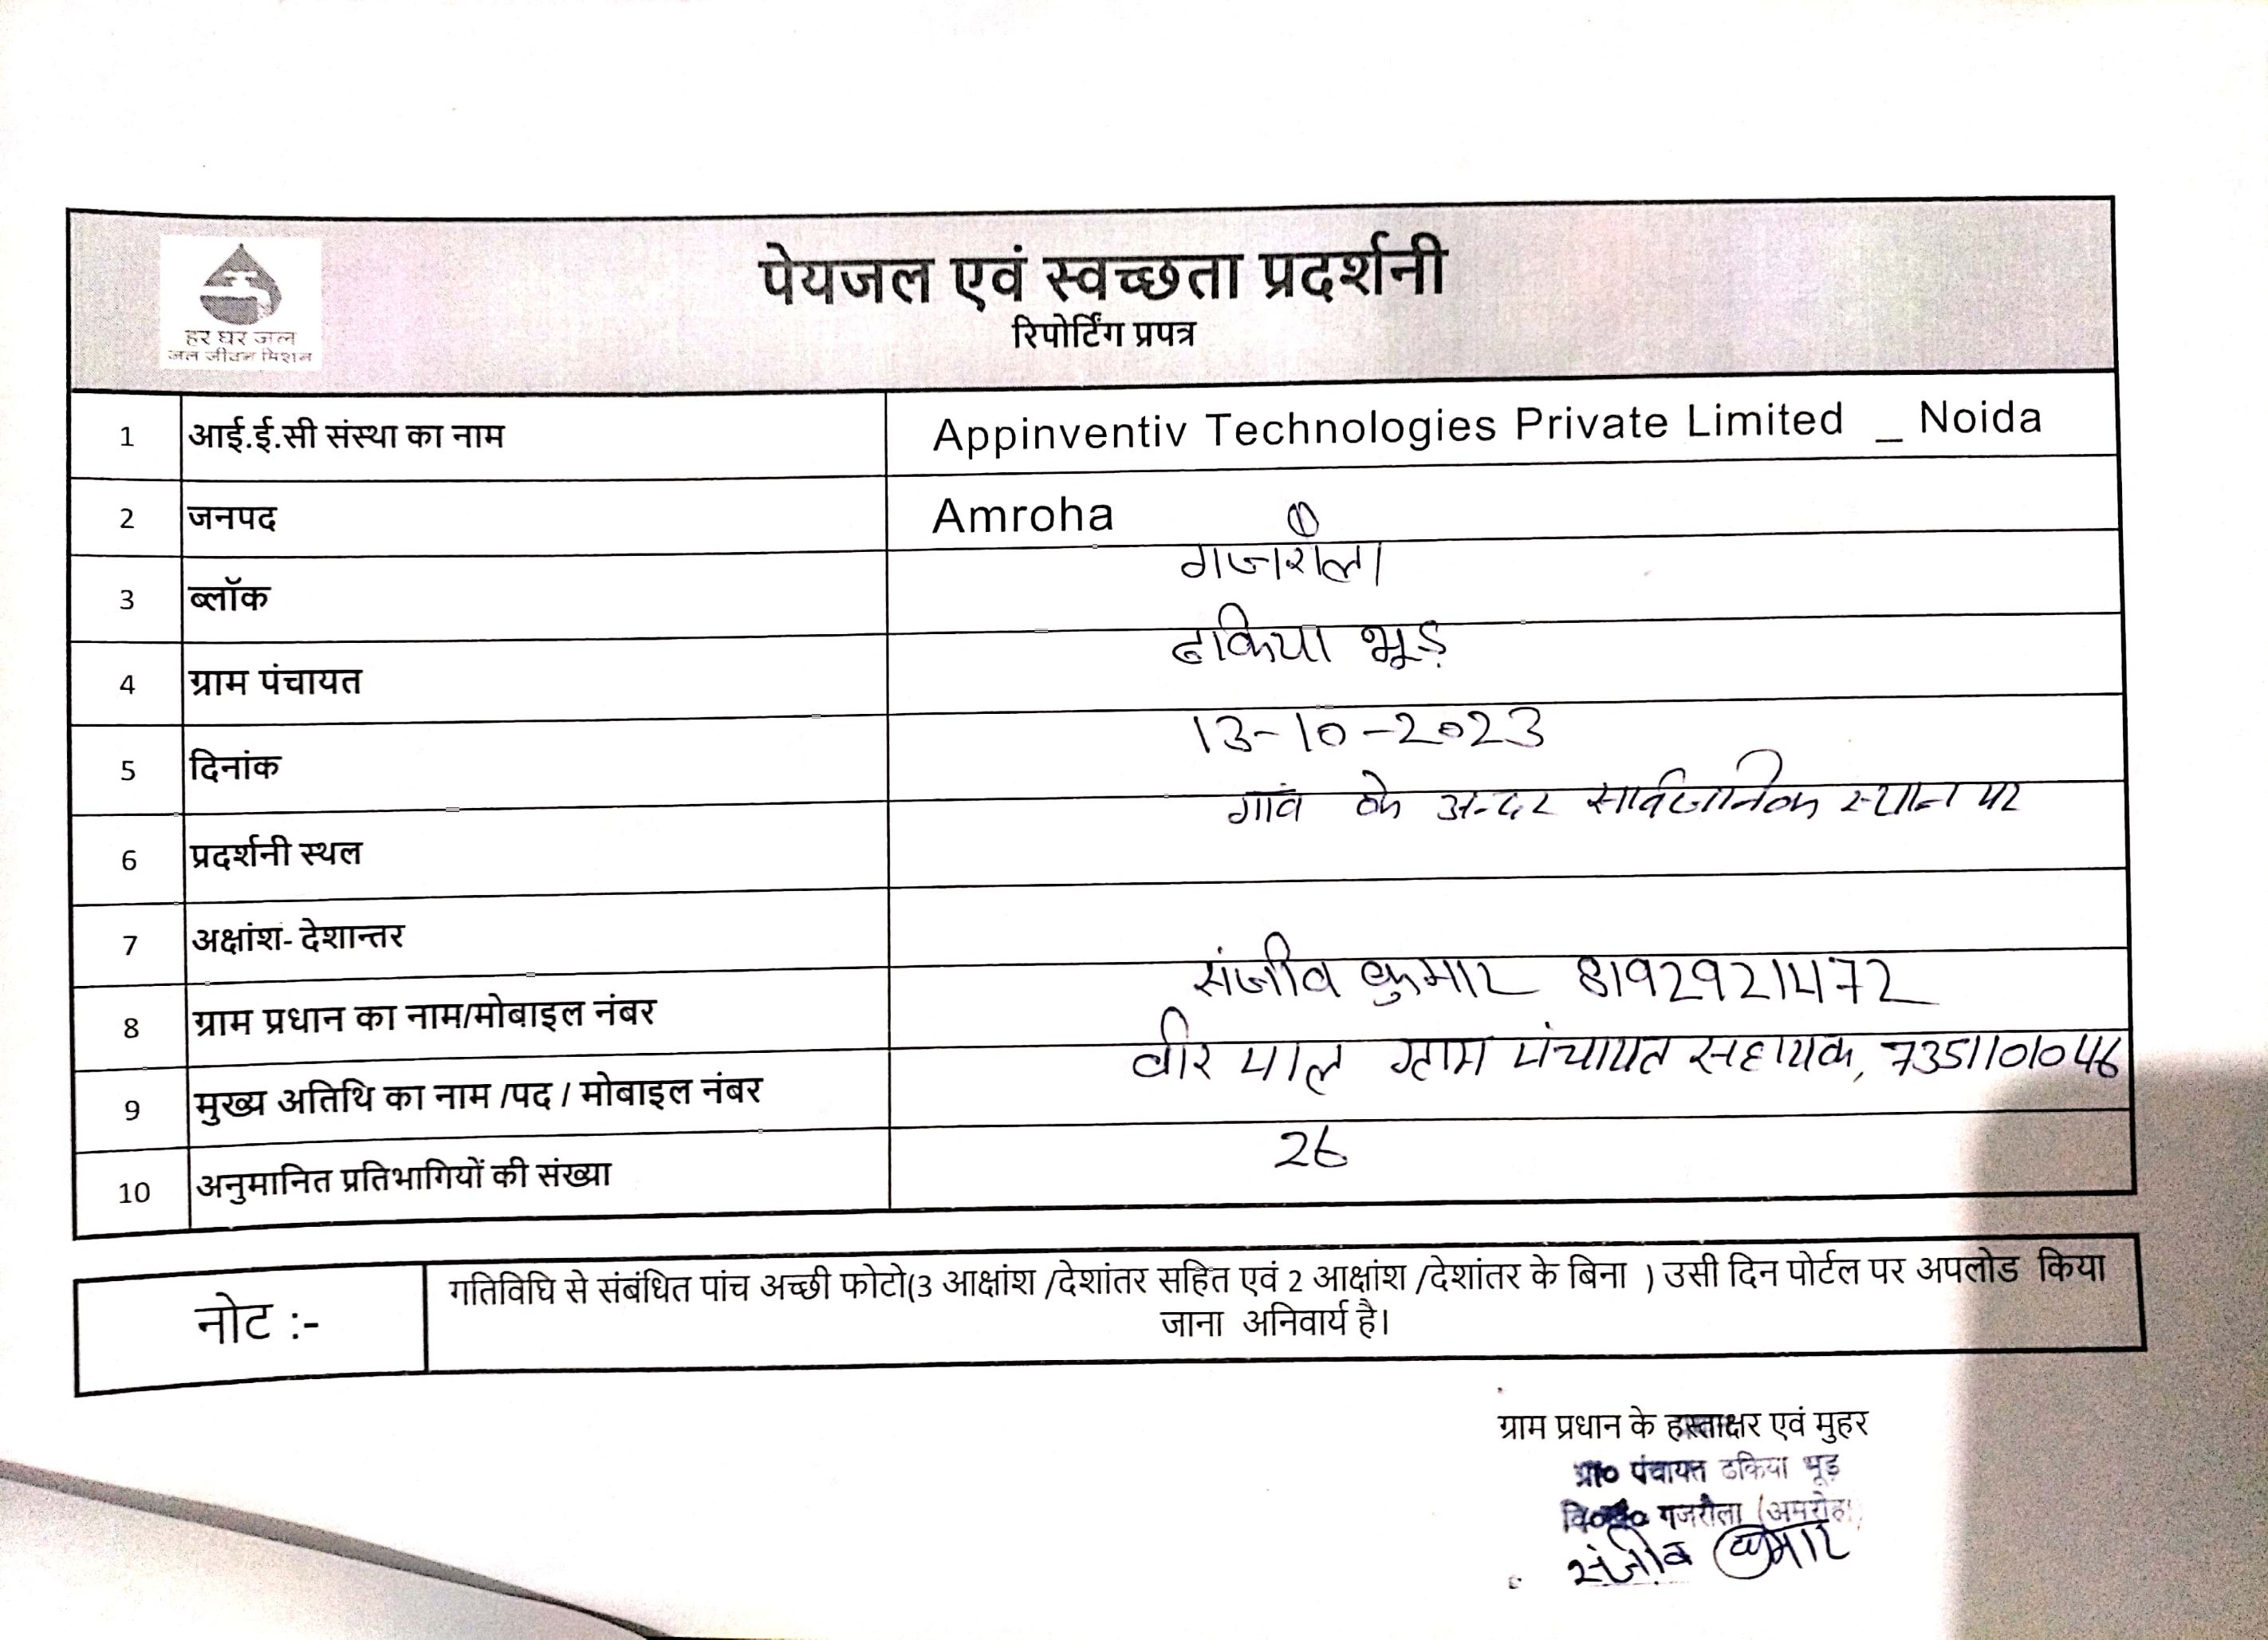 हर घर जल
जल जीवन मिशन
पेयजल एवं स्वच्छता प्रदर्शनी
रिपोर्टिंग प्रपत्र
1 आई.ई.सी संस्था का नाम Appinventiv Technologies Private Limited _ Noida
2 जनपद Amroha
3 ब्लॉक गजरौला
4 ग्राम पंचायत ढकिया भूड़
5 दिनांक 13-10-2023
6 प्रदर्शनी स्थल गांव के अन्दर सार्वजनिक स्थान पर
7 अक्षांश- देशान्तर
8 ग्राम प्रधान का नाम/मोबाइल नंबर संजीव कुमार 8192921472
9 मुख्य अतिथि का नाम /पद / मोबाइल नंबर वीर पाल ग्राम पंचायत सहायक, 7351101046
10 अनुमानित प्रतिभागियों की संख्या 26
नोट :- गतिविधि से संबंधित पांच अच्छी फोटो(3 आक्षांश /देशांतर सहित एवं 2 आक्षांश /देशांतर के बिना ) उसी दिन पोर्टल पर अपलोड किया
जाना अनिवार्य है।
ग्राम प्रधान के हस्ताक्षर एवं मुहर
ग्रा० पंचायत ढकिया भूड़
गजरौला (अमरोहा)
संजीव कुमार